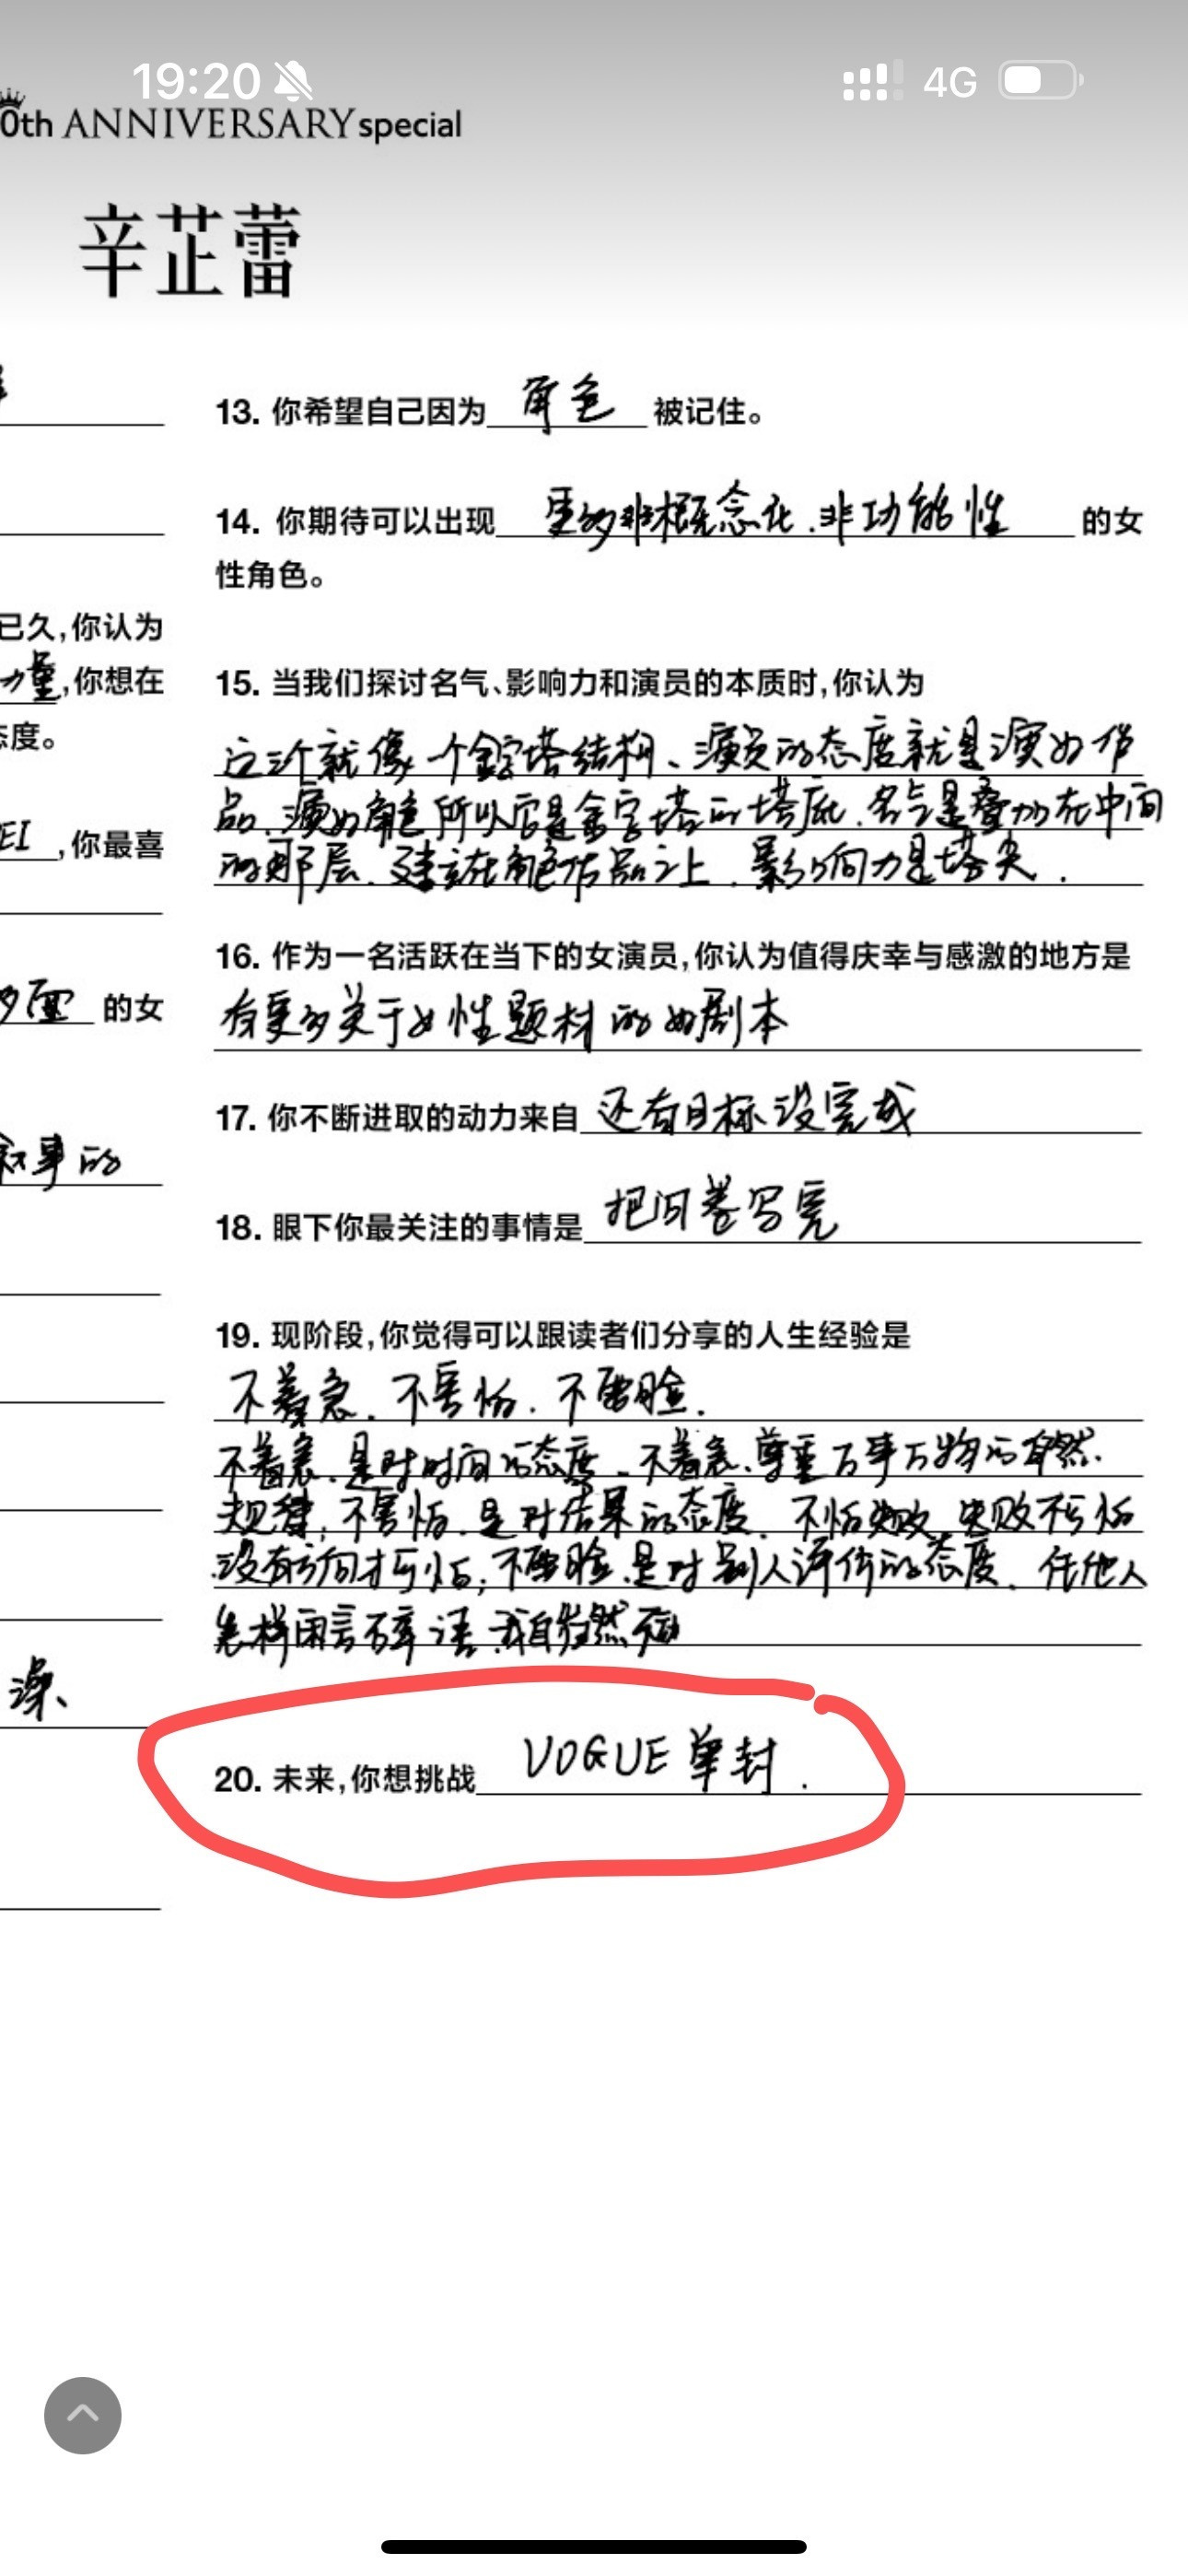 19:20
4G
0th ANNIVERSARY special
辛芷蕾
已久,你认为
力量,你想在
态度。
EI,你最喜
多面 的女
叙事的
深、
13. 你希望自己因为 角色 被记住。
14. 你期待可以出现 更多非概念化.非功能性 的女
性角色。
15. 当我们探讨名气、影响力和演员的本质时,你认为
这三个就像一个金字塔结构、演员的态度就是演好作
品.演好角色所以它是金字塔的塔底.名气是叠加在中间
的那层.建立在角色作品之上.影响力是塔尖.
16. 作为一名活跃在当下的女演员,你认为值得庆幸与感激的地方是
有更多关于女性题材的好剧本
17. 你不断进取的动力来自 还有目标没完成
18. 眼下你最关注的事情是 把问卷写完
19. 现阶段,你觉得可以跟读者们分享的人生经验是
不着急.不害怕.不要脸.
不着急.是对时间的态度.不着急.尊重万事万物的自然.
规律;不害怕.是对结果的态度.不怕失败.失败不可怕
没有方向才可怕;不要脸.是对别人评价的态度.任他人
怎样闲言碎语.我自岿然不动
20. 未来,你想挑战 VOGUE单封.